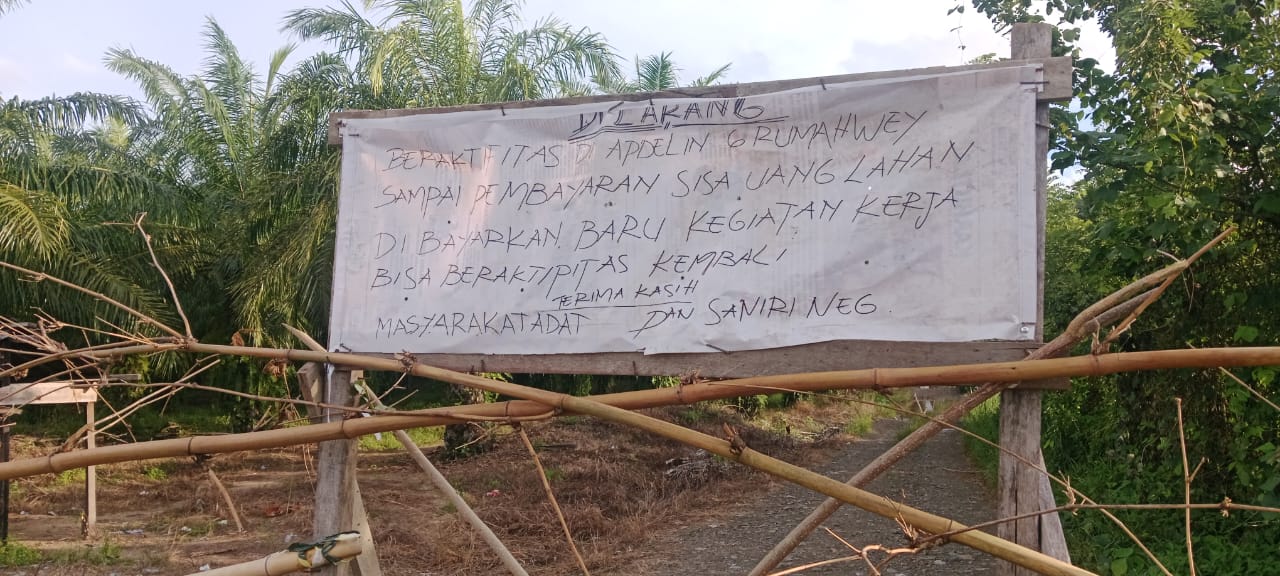 DILAKANG
BERAKTIFITAS DI APDELIN 6 RUMAHWEY
SAMPAI PEMBAYARAN SISA UANG LAHAN
DI BAYARKAN. BARU KEGIATAN KERJA
BISA BERAKTIPITAS KEMBALI
TERIMA KASIH
MASYARAKAT ADAT DAN SANIRI NEG